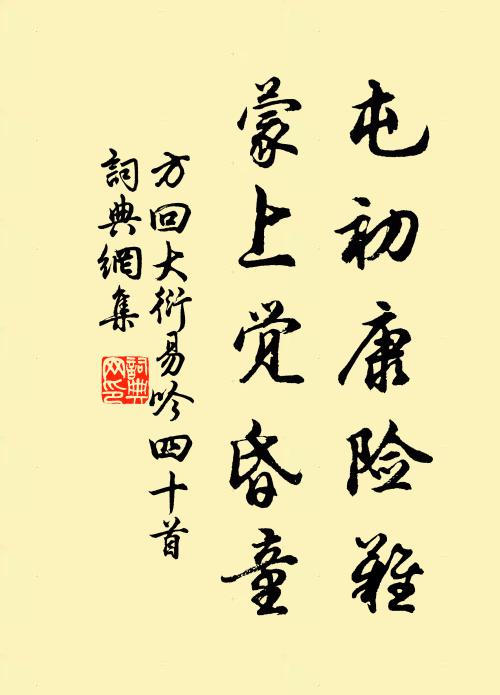 屯初康险難
蒙上觉昏童
方回大衍易吟四十首
詞典網集
詞典網印